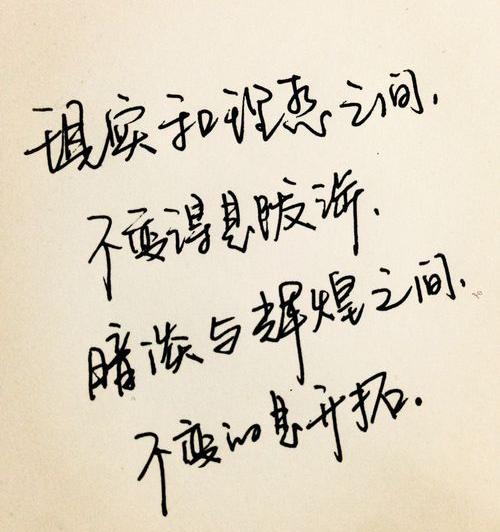 现实和理想之间，
不变得是跋涉，
暗淡与辉煌之间，
不变的是开拓.